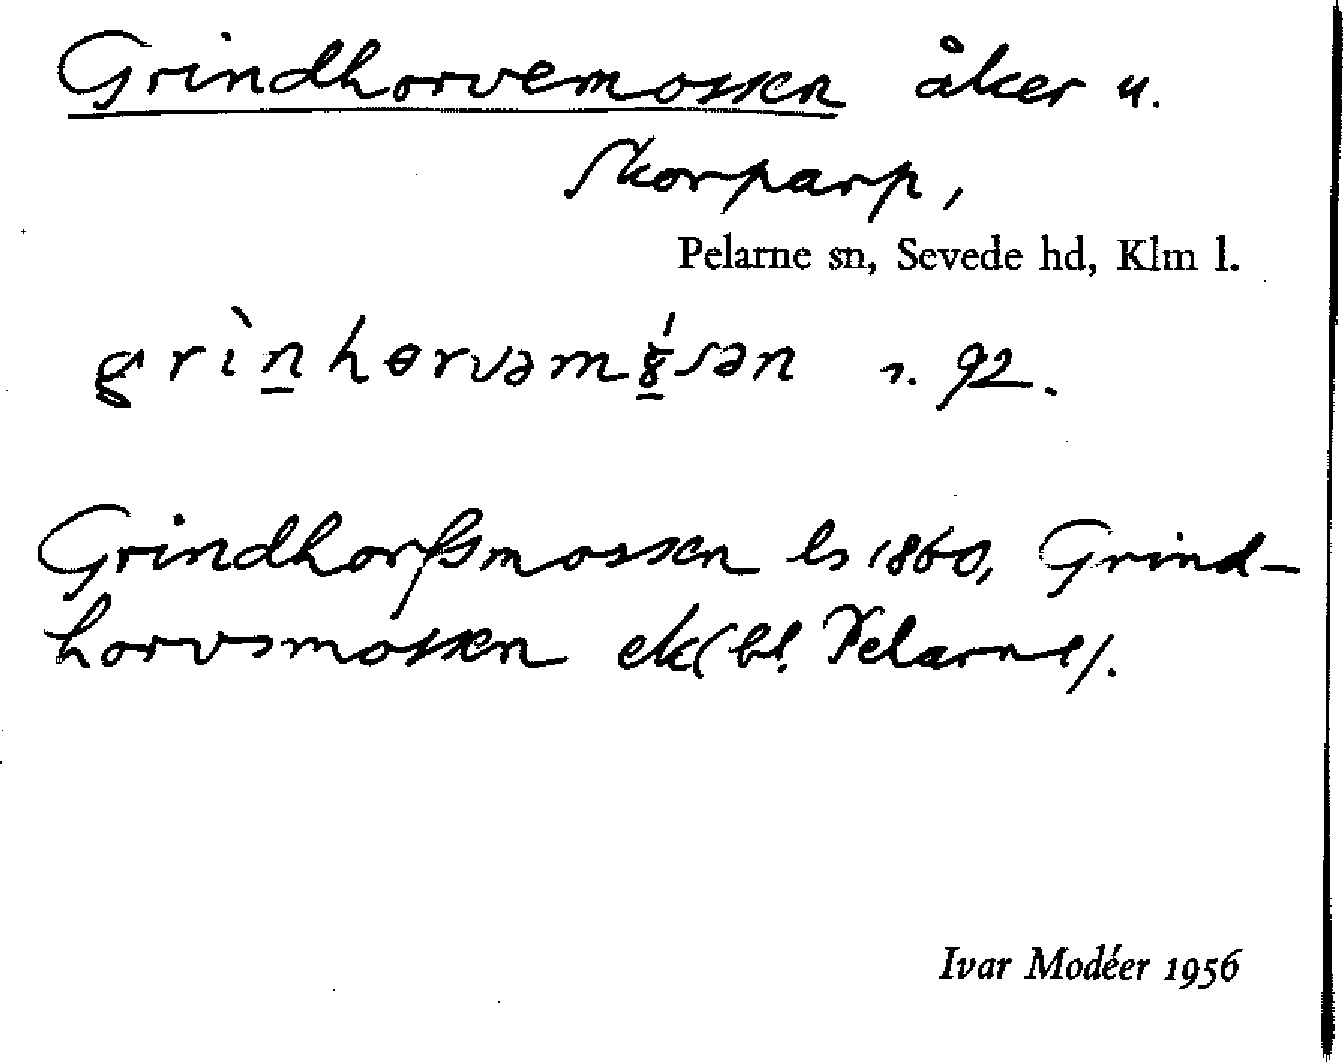 Grindhorvemossen åker u.
Skorparp,
Pelarne sn, Sevede hd, Klm l.
n. 92.
Grindhorfsmossen ls 1860, Grind-
horvsmossen ek(bl. Pelarne).
Ivar Modéer 1956